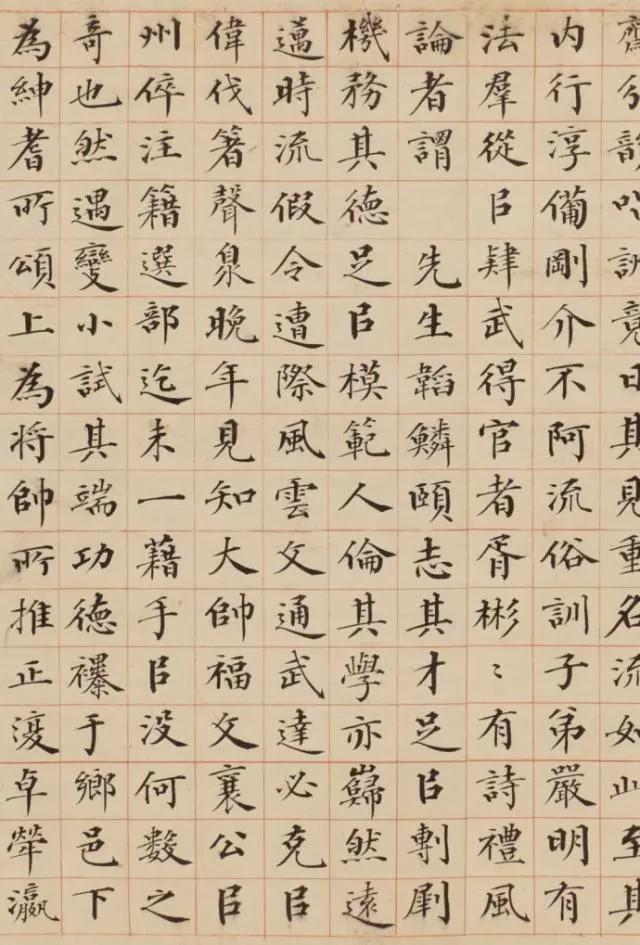 齋分日其見重名流如此至其
内行淳備剛介不阿流俗訓子弟嚴明有
法羣從㠯肄武得官者胥彬〻有詩禮風
論者謂 先生韜鱗頤志其才足㠯剸劇
機務其德足㠯模範人倫其學亦巋然遠
邁時流假令遭際風雲文通武達必克㠯
偉伐箸聲臮晚年見知大帥福文襄公㠯
州倅注籍選部迄未一藉手㠯没何數之
奇也然遇變小試其端功德襮于鄉邑下
為紳耆所頌上為將帥所推正復卓犖瀛